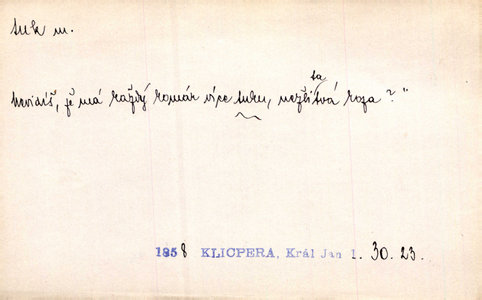 tuk m.
ta
nevidíš, že má každý komár více tuku, nežli tvá koza?"
1858 KLICPERA, Král Jan 1. 30. 23.